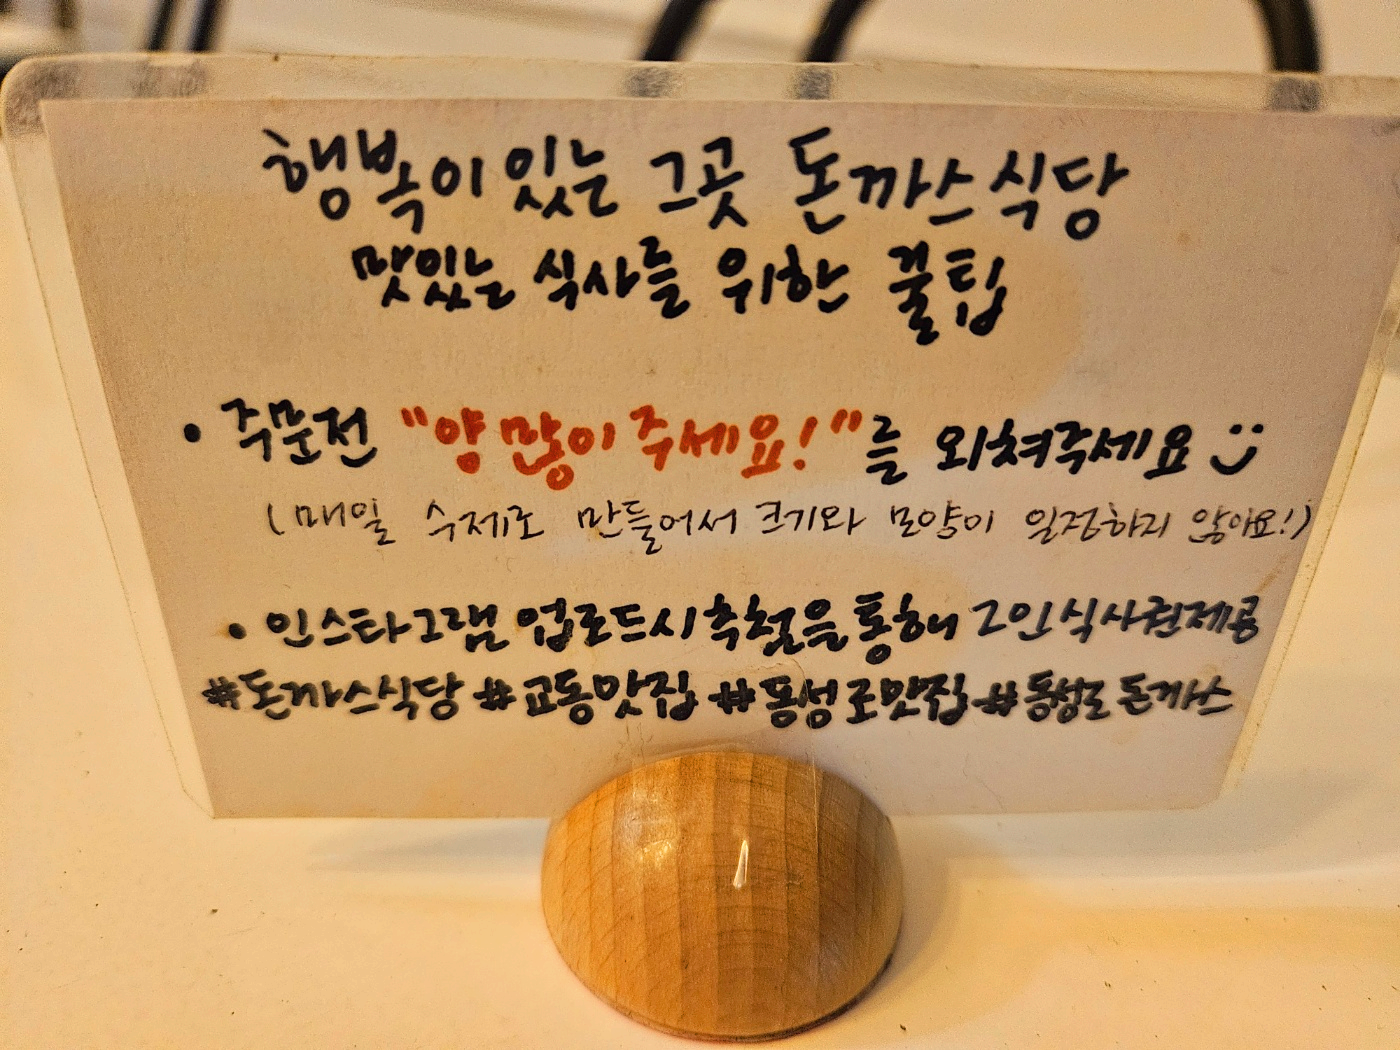 행복이 있는 그곳 돈까스식당
맛있는 식사를 위한 꿀팁
• 주문전 "양 많이 주세요!"를 외쳐주세요
(매일 수제로 만들어서 크기와 모양이 일정하지 않아요!)
• 인스타그램 업로드시 추첨을 통해 2인 식사권제공
#돈까스식당 #교동맛집 #동성로맛집 #동성로돈까스